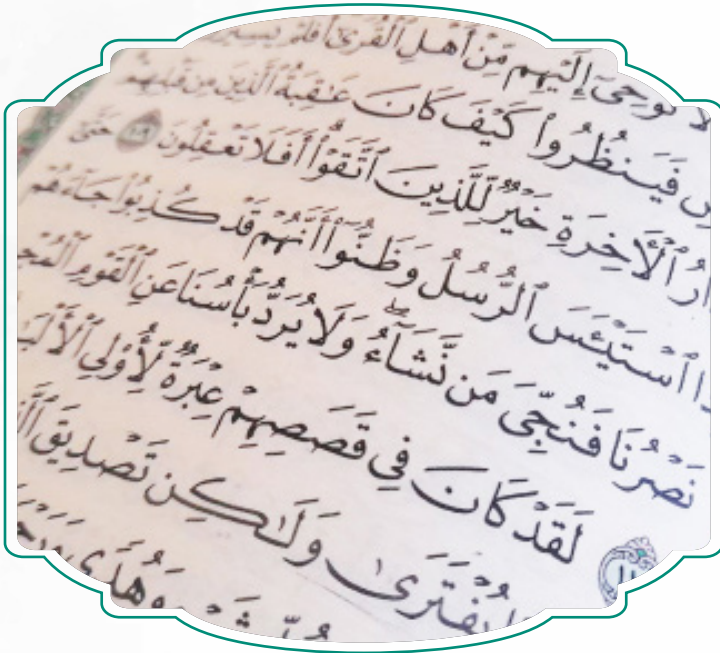 نُوحِىٓ إِلَيْهِم مِّنْ أَهْلِ ٱلْقُرَىٰٓ أَفَلَمْ يَسِيرُوا۟
فَيَنظُرُوا۟ كَيْفَ كَانَ عَـٰقِبَةُ ٱلَّذِينَ مِن قَبْلِهِمْ
ٱلْـَٔاخِرَةِ خَيْرٌ لِّلَّذِينَ ٱتَّقَوْا۟ أَفَلَا تَعْقِلُونَ ١٠٩ حَتَّىٰٓ
ٱسْتَيْـَٔسَ ٱلرُّسُلُ وَظَنُّوٓا۟ أَنَّهُمْ قَدْ كُذِبُوا۟ جَآءَهُمْ
نَصْرُنَا فَنُجِّىَ مَن نَّشَآءُ ۖ وَلَا يُرَدُّ بَأْسُنَا عَنِ ٱلْقَوْمِ
لَقَدْ كَانَ فِى قَصَصِهِمْ عِبْرَةٌ لِّأُو۟لِى
يُفْتَرَىٰ وَلَـٰكِن تَصْدِيقَ
وَهُدًى